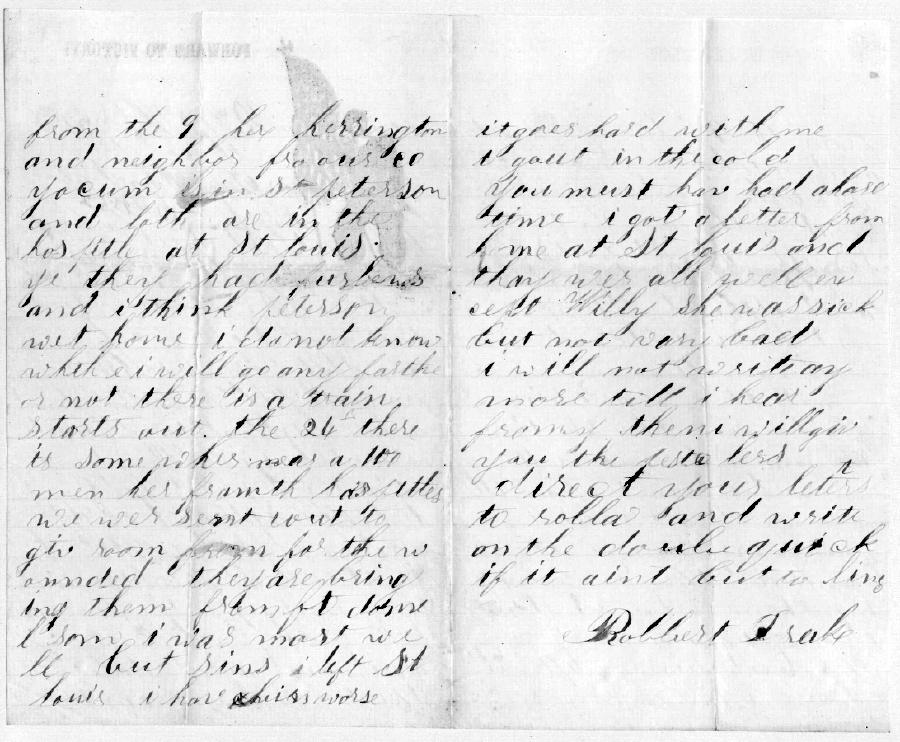 from the 9 her herrington
and neighbor from our co
yocum is in St peterson
and both are in the
hospitle at St louis
ye they had furlows
and i think peterson
wet home i do not know
whithe i will go any farthe
or not there is a train
starts out. the 26 there
is some wher near a 100
men her from th hospittles
we wer sent out to
giv room for the w
ounded they are bring
ing them from ft donel
l som i was most we
ll but sins i left St
louis i hav chills worse
it goes hard with me
to gout in the cold
you must hav had a hard
time i got a letter from
home at St louis and
thay wer all well ex
cept Willy she was sick
but not vary bad
i will not writ ay
more till i hear
from y then i will giv
you the
direct your leters
to rolla and write
on the double quick
if it aint but to line
Robbert Frake